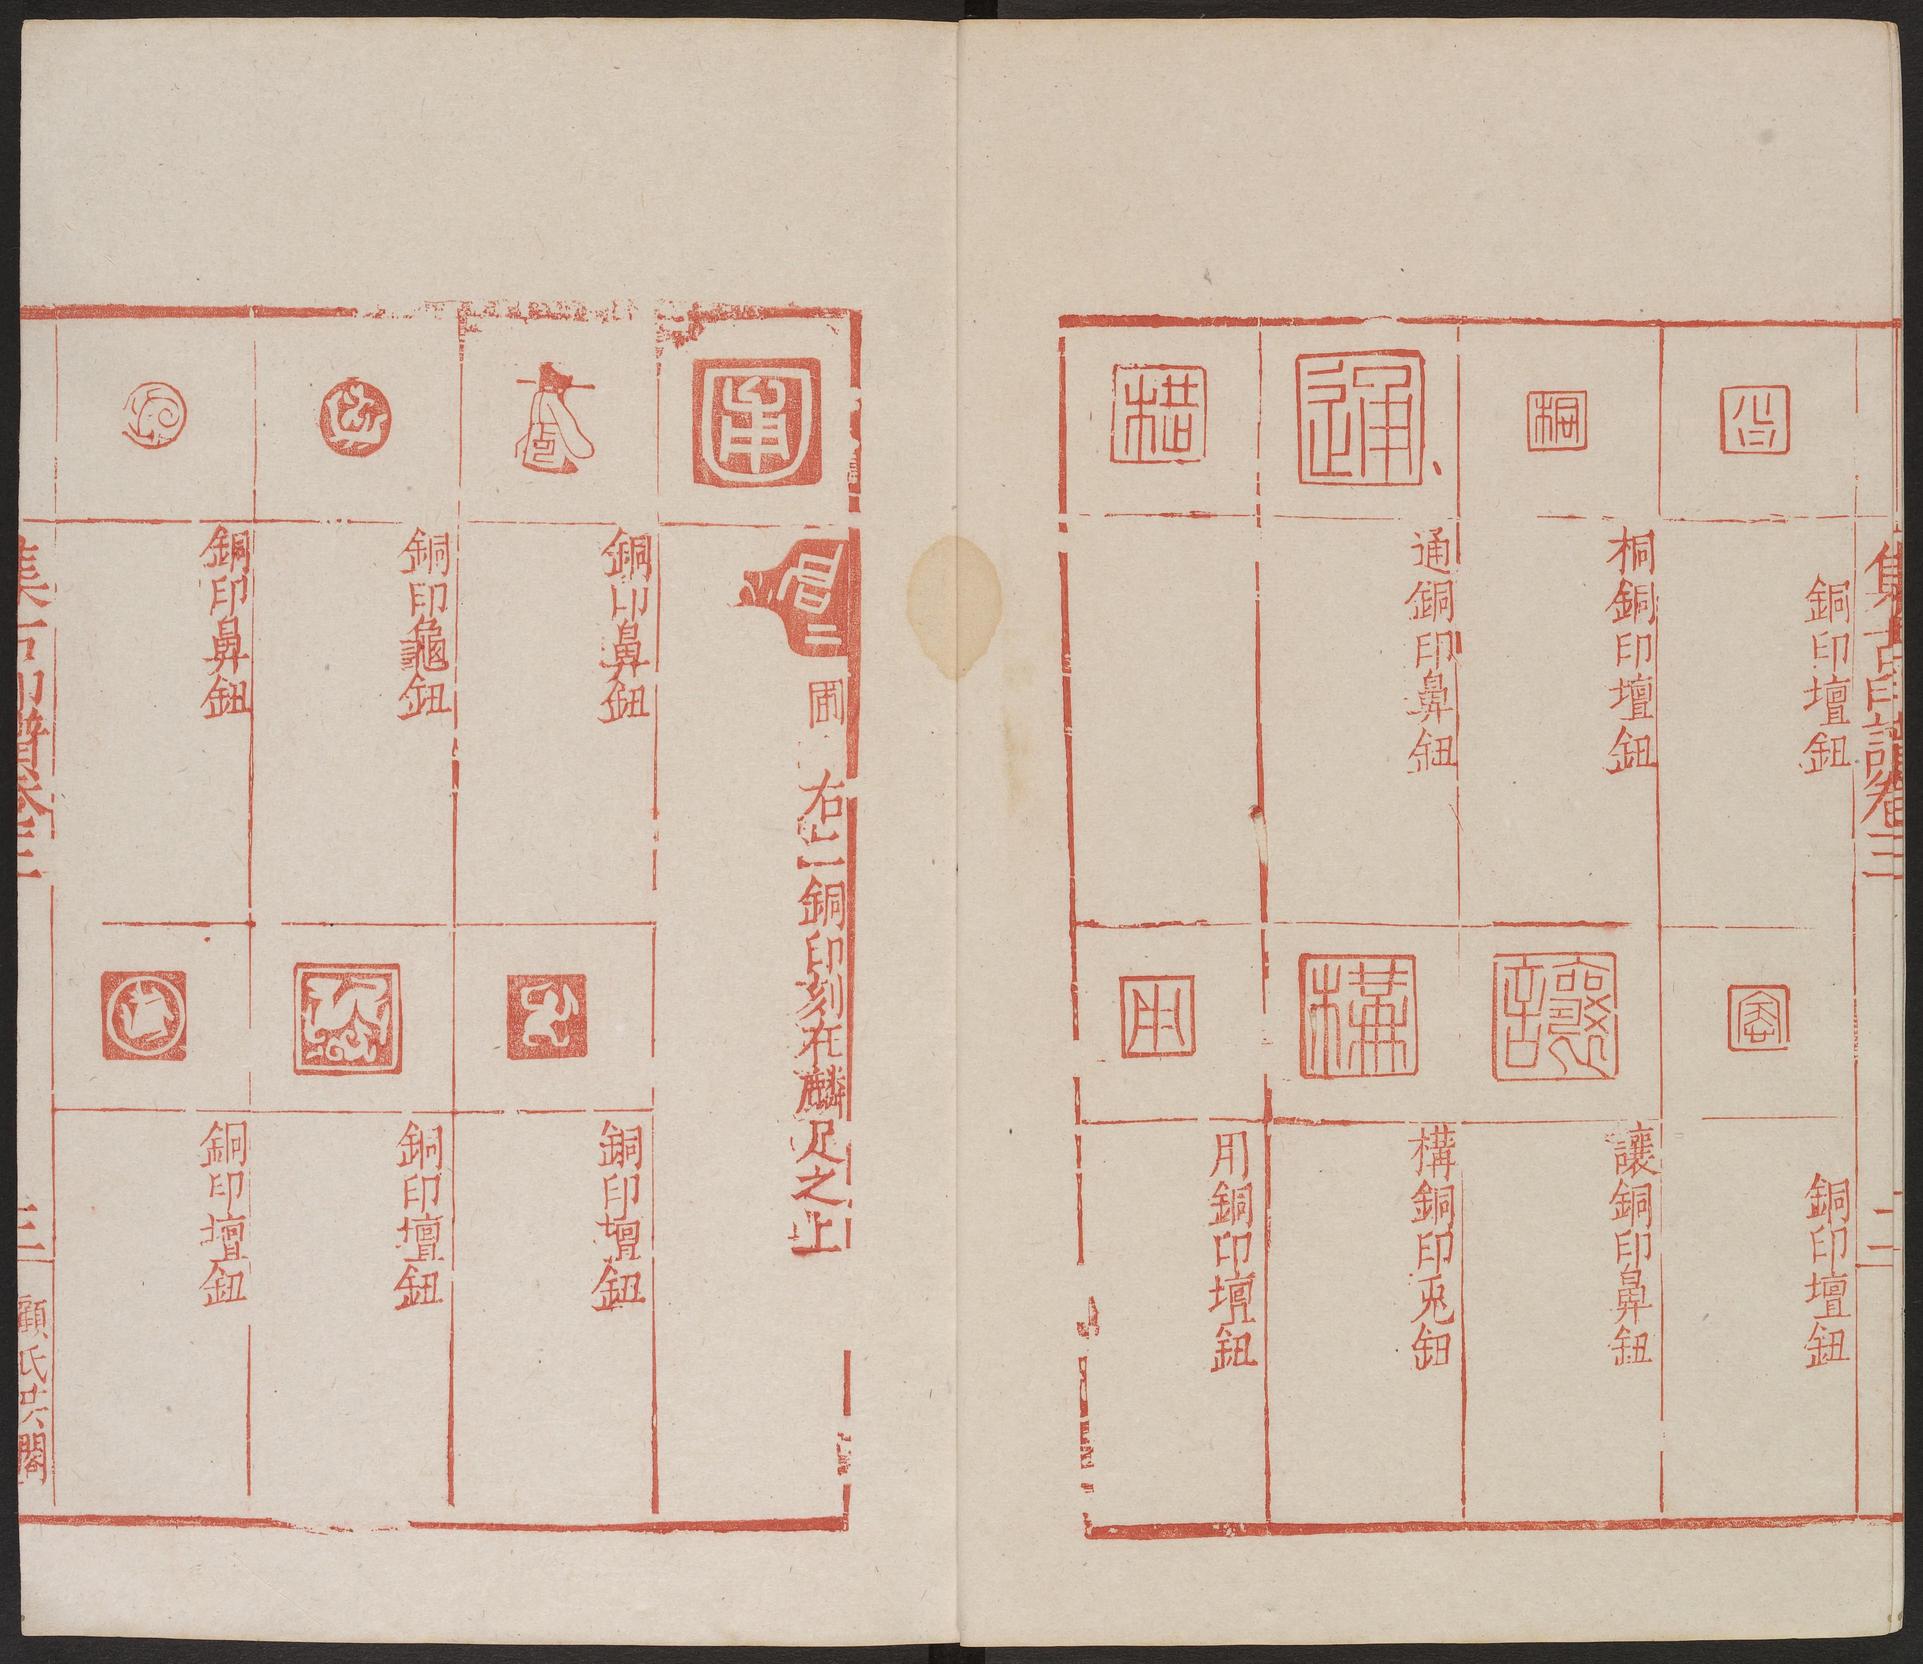 集古印譜卷三
二
銅印壇鈕
桐銅印壇鈕
通銅印鼻鈕
銅印壇鈕
讓銅印鼻鈕
構銅印兎鈕
用銅印壇鈕
右七一銅印刻在麟足之止
銅印鼻鈕
銅印龜鈕
銅印鼻鈕
銅印壇鈕
銅印壇鈕
銅印壇鈕
集古印譜卷三
三
顧氏芸閣